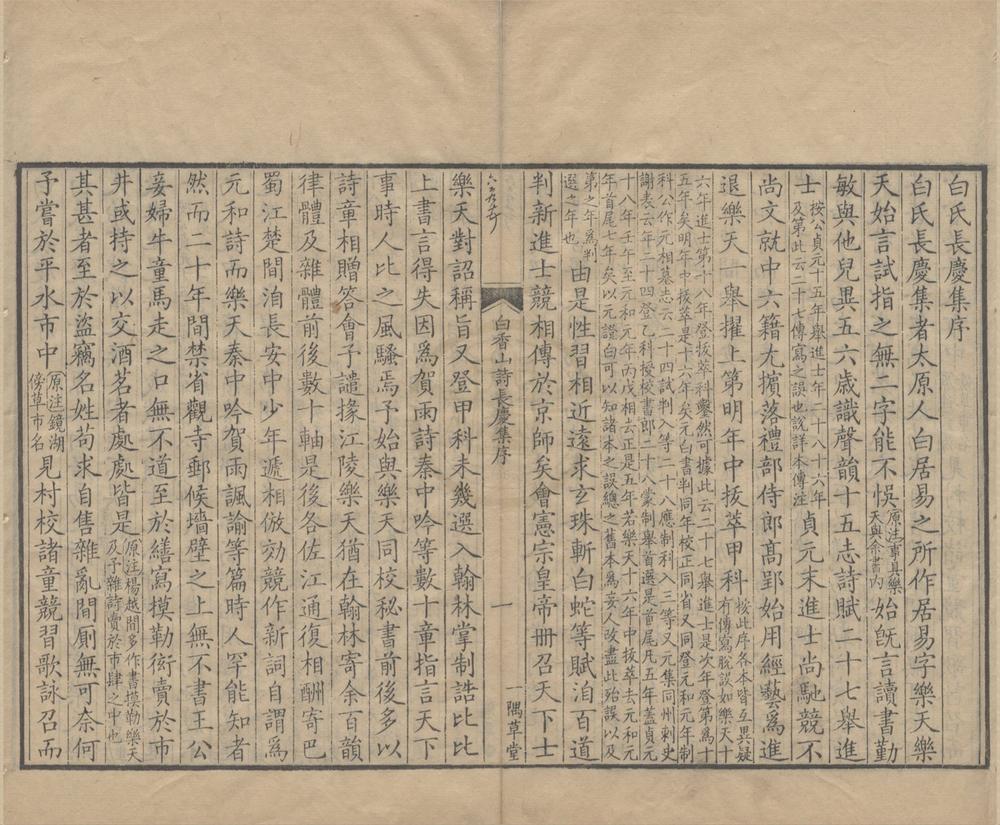 白氏長慶集序
白氏長慶集者太原人白居易之所作居易字樂天樂
天始言試指之無二字能不悞
原注事具樂
天與余書內
始旣言讀書勤
敏與他兒異五六歲識聲韻十五志詩賦二十七舉進
士
按公貞元十五年舉進士年二十八十六年
及第此云二十七傳寫之誤也說詳本傳注
貞元末進士尚馳競不
尚文就中六籍尤擯落禮部侍郎髙郢始用經藝爲進
退樂天一舉擢上第明年中拔萃甲科
按此序各本皆互異疑
有傳寫脫誤如樂天十
六年進士第十八年登拔萃科鑿然可據此云二十七舉進士是次年登第爲十
五年矣明年中拔萃是十六年矣元白書判同年校正同省又同登元和元年制
科公作元相墓志云二十四試判入等二十八應制科入三等又元集同州刺史
謝表云年二十四登乙科授校書郎二十八蒙制舉首選是首尾凡五年蓋貞元
十八年壬午至元和元年丙戌相去正是五年若樂天十六年中拔萃去元和元
年首尾七年矣以元證白可以知諸本之誤總之舊本爲妄人改盡此殆誤以及
第之年爲判
選之年也
由是性習相近遠求玄珠斬白蛇等賦洎百道
判新進士競相傳於京師矣會憲宗皇帝冊召天下士
白香山詩長慶集序
一
一隅草堂
樂天對詔稱旨又登甲科未幾選入翰林掌制誥比比
上書言得失因爲賀雨詩秦中吟等數十章指言天下
事時人比之風騷焉予始與樂天同校秘書前後多以
詩章相贈答會予譴掾江陵樂天猶在翰林寄余百韻
律體及雜體前後數十軸是後各佐江通復相酬寄巴
蜀江楚間洎長安中少年遞相倣効競作新詞自謂爲
元和詩而樂天秦中吟賀雨諷諭等篇時人罕能知者
然而二十年間禁省觀寺郵候墻壁之上無不書王公
妾婦牛童馬走之口無不道至於繕寫模勒衒賣於市
井或持之以交酒茗者處處皆是
原注楊越間多作書摸勒樂天
及予雜詩賣於市肆之中也
其甚者至於盜竊名姓苟求自售雜亂間厠無可奈何
予嘗於平水市中
原注鏡湖
傍草市名
見村校諸童競習歌詠召而